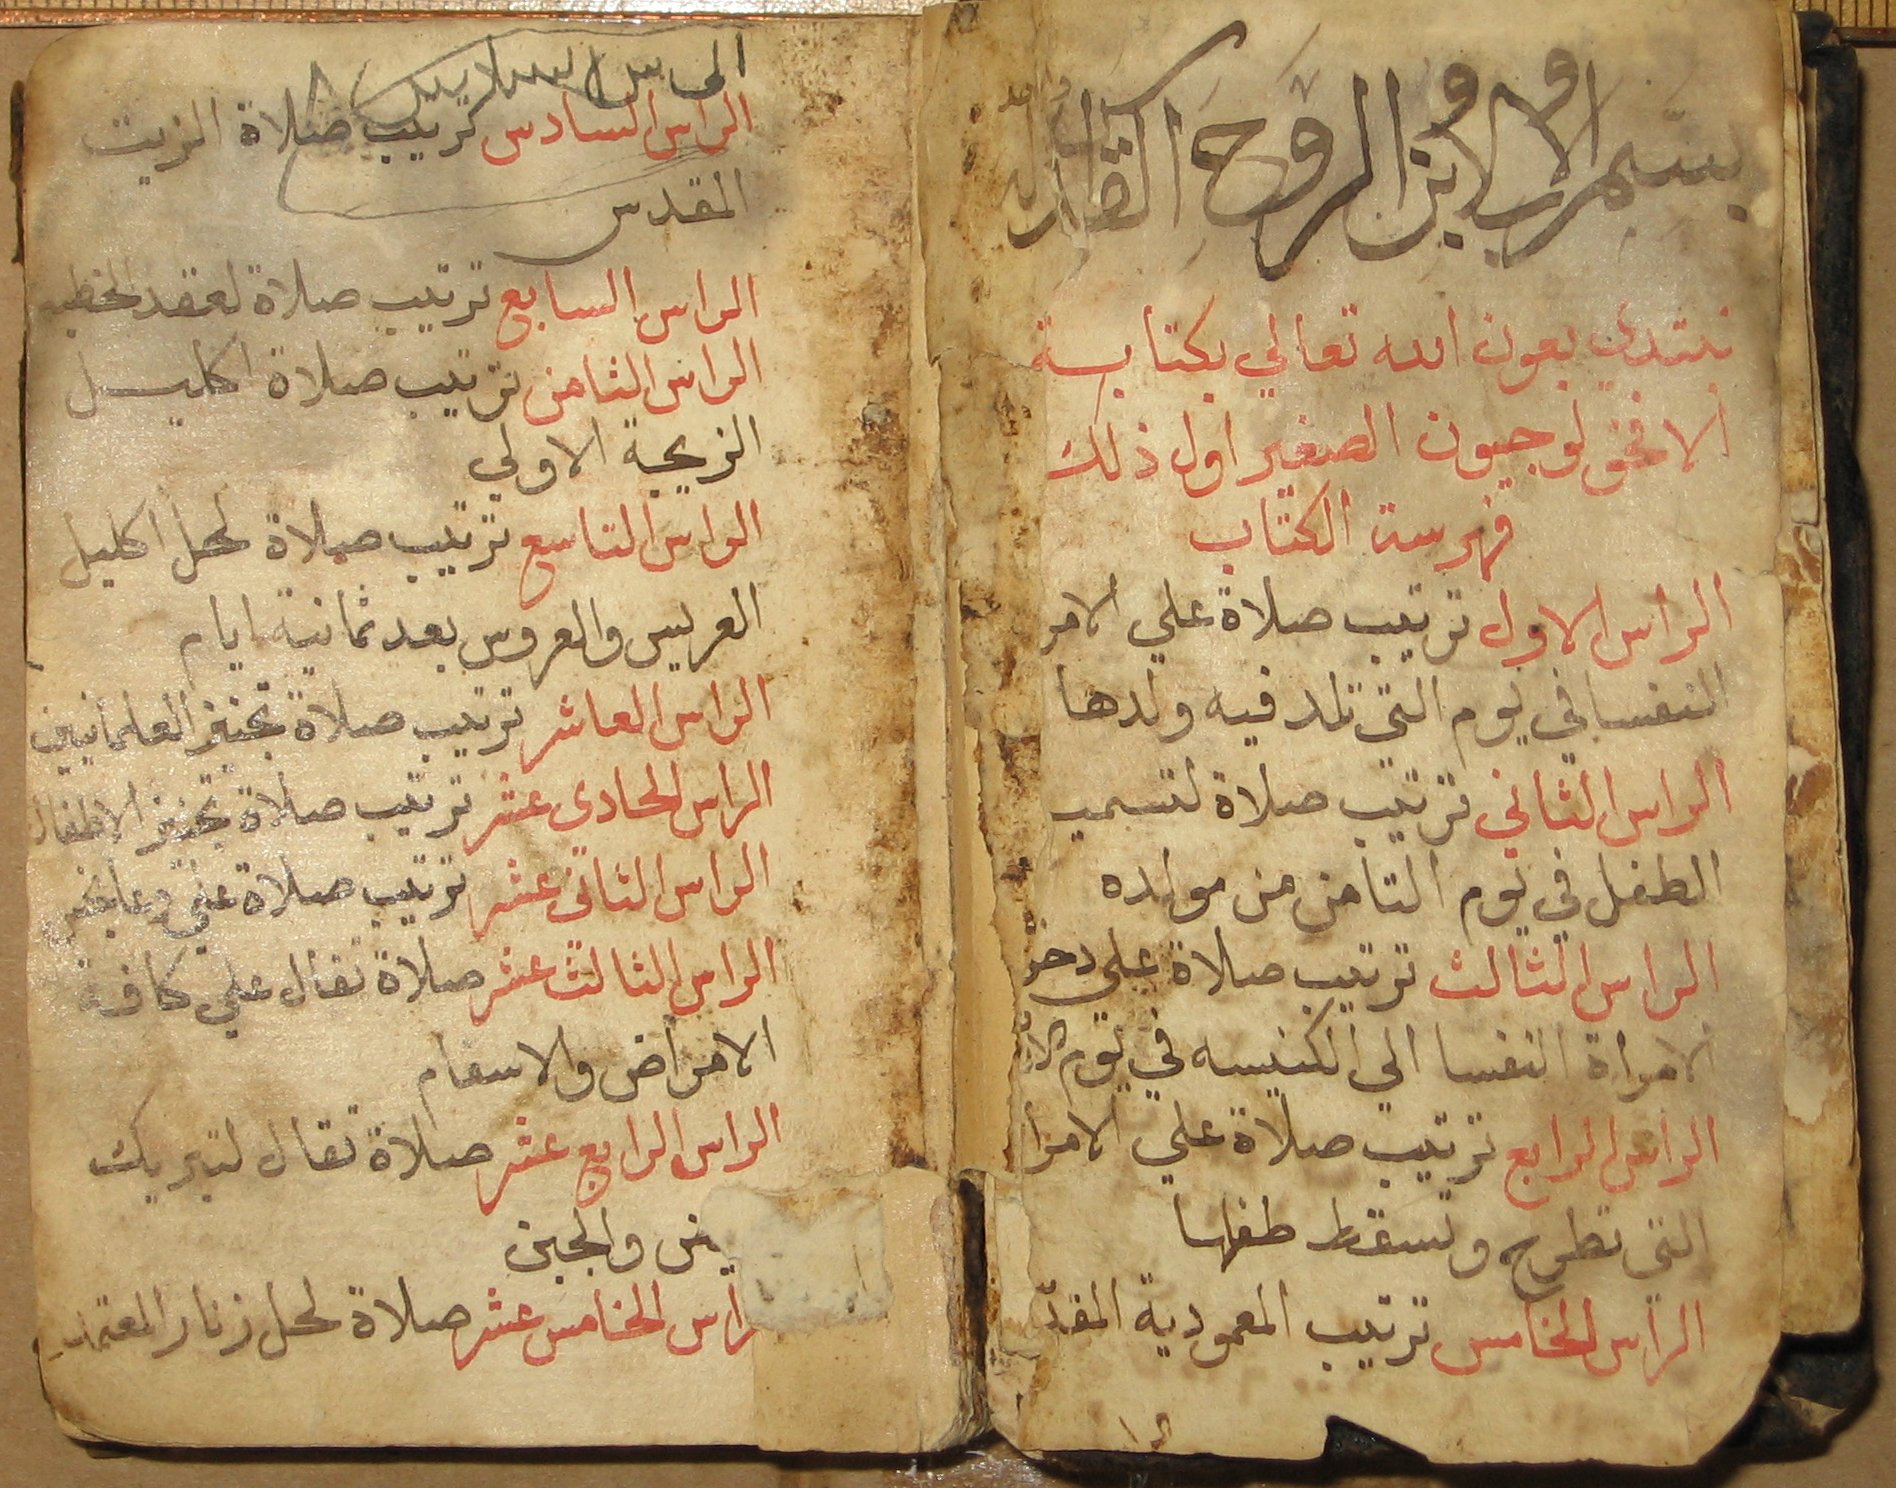 بسم الاب والابن والروح القدس
نبتدي بعون الله تعالي بكتابة
الافخولوجيون الصغير اول ذلك
فهرست الكتاب
الراس الاول ترتيب صلاة علي الامر
النفسا في يوم التي تلد فيه ولدها
الراس الثاني ترتيب صلاة لتسميـ
الطفل في يوم الثامن من مولده
الراس الثالث ترتيب صلاة علي دخو
الامراة النفسا الي الكنيسه في يوم الار
الراس الرابع ترتيب صلاة علي الامرا
التي تطرح وتسقط طفلها
الراس الخامس ترتيب المعمودية المقد
الراس السادس ترتيب صلاة الزيت
المقدس
الراس السابع ترتيب صلاة لعقد الخطبه
الراس الثامن ترتيب صلاة اكليل
الزيجة الاولي
الراس التاسع ترتيب صلاة لحل اكليل
العريس والعروس بعد ثمانية ايام
الراس العاشر ترتيب صلاة تجنيز العلمانيين
الراس الحادى عشر ترتيب صلاة تجنيز الاطفال
الراس الثانى عشر ترتيب صلاة
الراس الثالث عشر صلاة تقال علي كافة
الامراض والاسقام
الراس الرابع عشر صلاة تقال لتبريك
يض والجبن
راس الخامس عشر صلاة لحل زنار المعتمد